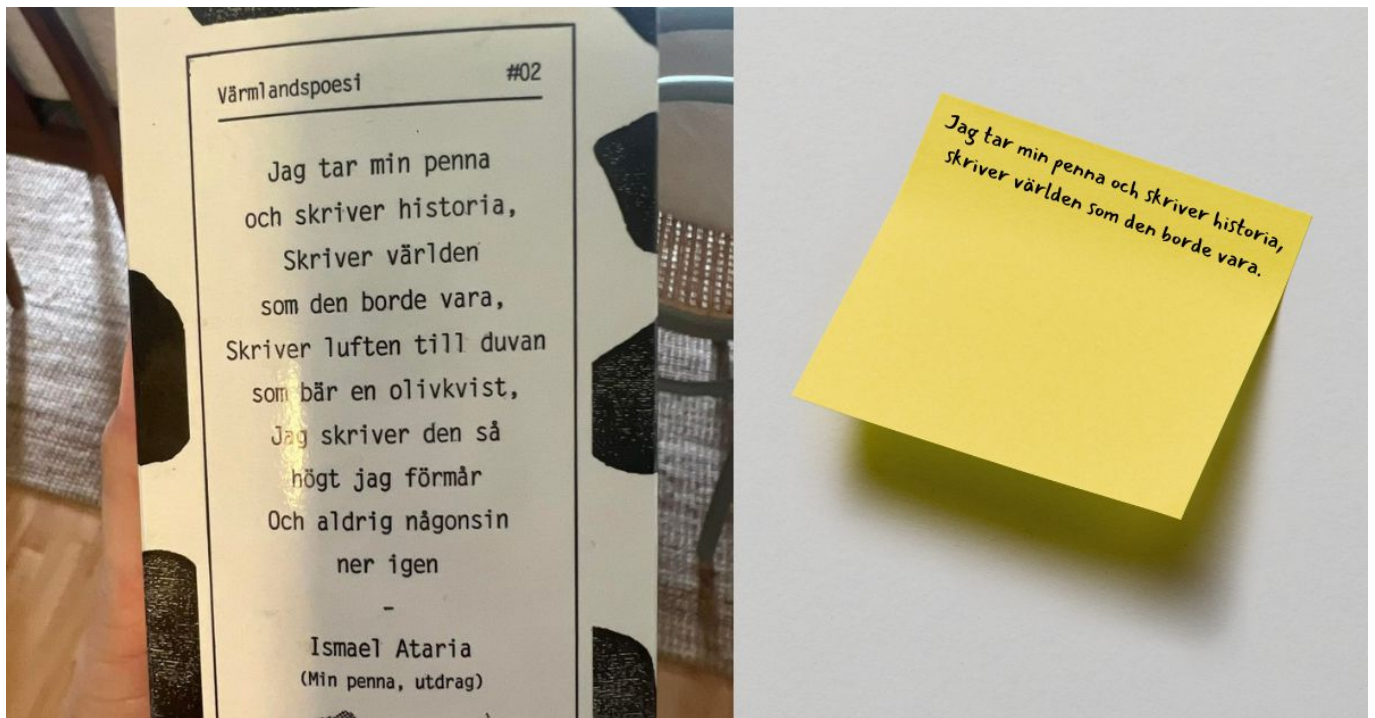 Värmlandspoesi #02
Jag tar min penna
och skriver historia,
Skriver världen
som den borde vara,
Skriver luften till duvan
som bär en olivkvist,
Jag skriver den så
högt jag förmår
Och aldrig någonsin
ner igen
–
Ismael Ataria
(Min penna, utdrag)
Jag tar min penna och skriver historia,
skriver världen som den borde vara.